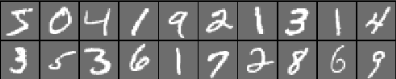 5 0 4 1 9 2 1 3 1 4
3 5 3 6 1 7 2 8 6 9